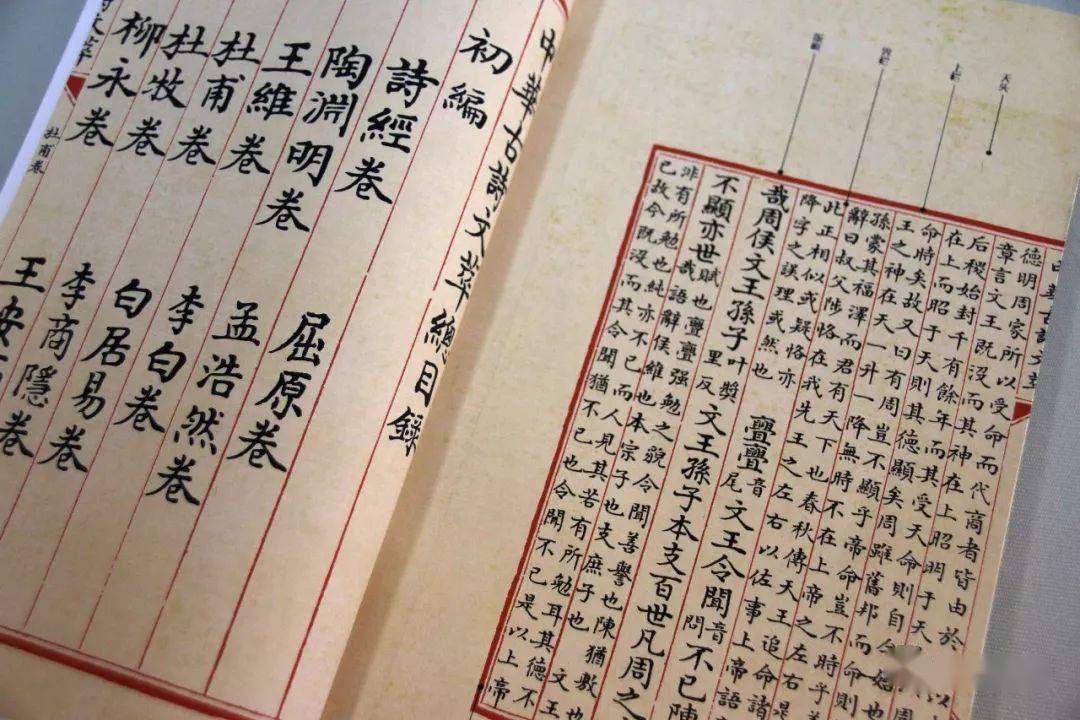 天头
德明周家所以受命而代商者皆由於
章言文王既沒而其神在上昭明于天
后稷始封千有餘年而其受天命則自今始也
在上而昭于天則其德顯矣周雖舊邦而命則
命時矣故又曰有周豈不顯乎帝命豈不時乎
王之神在天一升一降無時不在上帝之左右是
孫蒙其福澤而君有天下也春秋傳天王追命諸
辭曰叔父陟恪在我先王之左右以佐事上帝語
此正相似或疑恪亦
降字之誤理或然也
亹亹音尾文王令聞音問不已陳
哉周侯文王孫子叶獎里反文王孫子本支百世凡周之
不顯亦世賦也亹亹强勉之貌令聞善譽也陳猶敷也
哉語辭侯維也本宗子也支庶子也文王
非有所勉也純亦不已而人見其若有所勉耳其德不
已故今既沒而其令聞猶不已也令聞不已是以上帝
中華古詩文萃總目錄
初編
詩經卷 屈原卷
陶淵明卷 孟浩然卷
王維卷 李白卷
杜甫卷 白居易卷
杜牧卷 李商隱卷
柳永卷 王安
文萃
杜甫卷